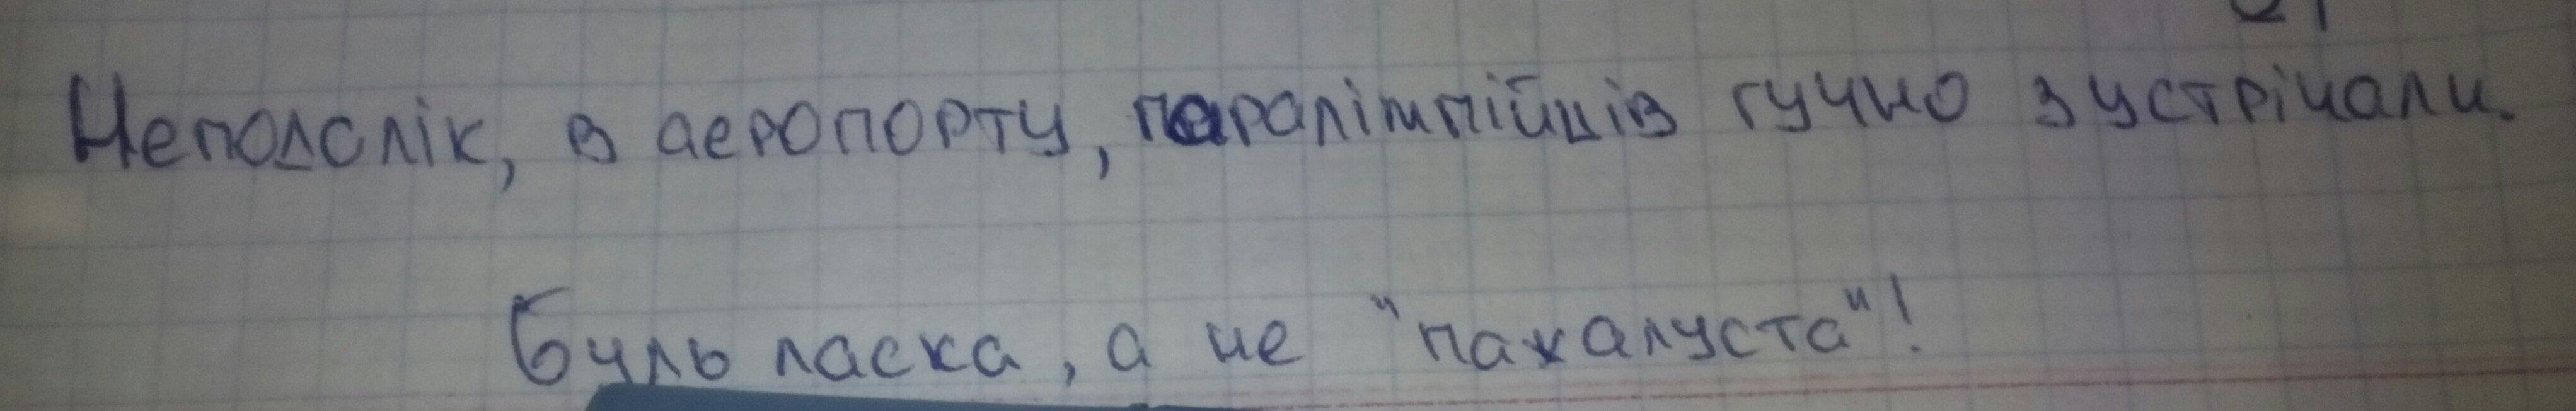 Неподалік, в аеропорту, паралімпійців гучно зустрічали.
Будь ласка, а не "пажалуста"!